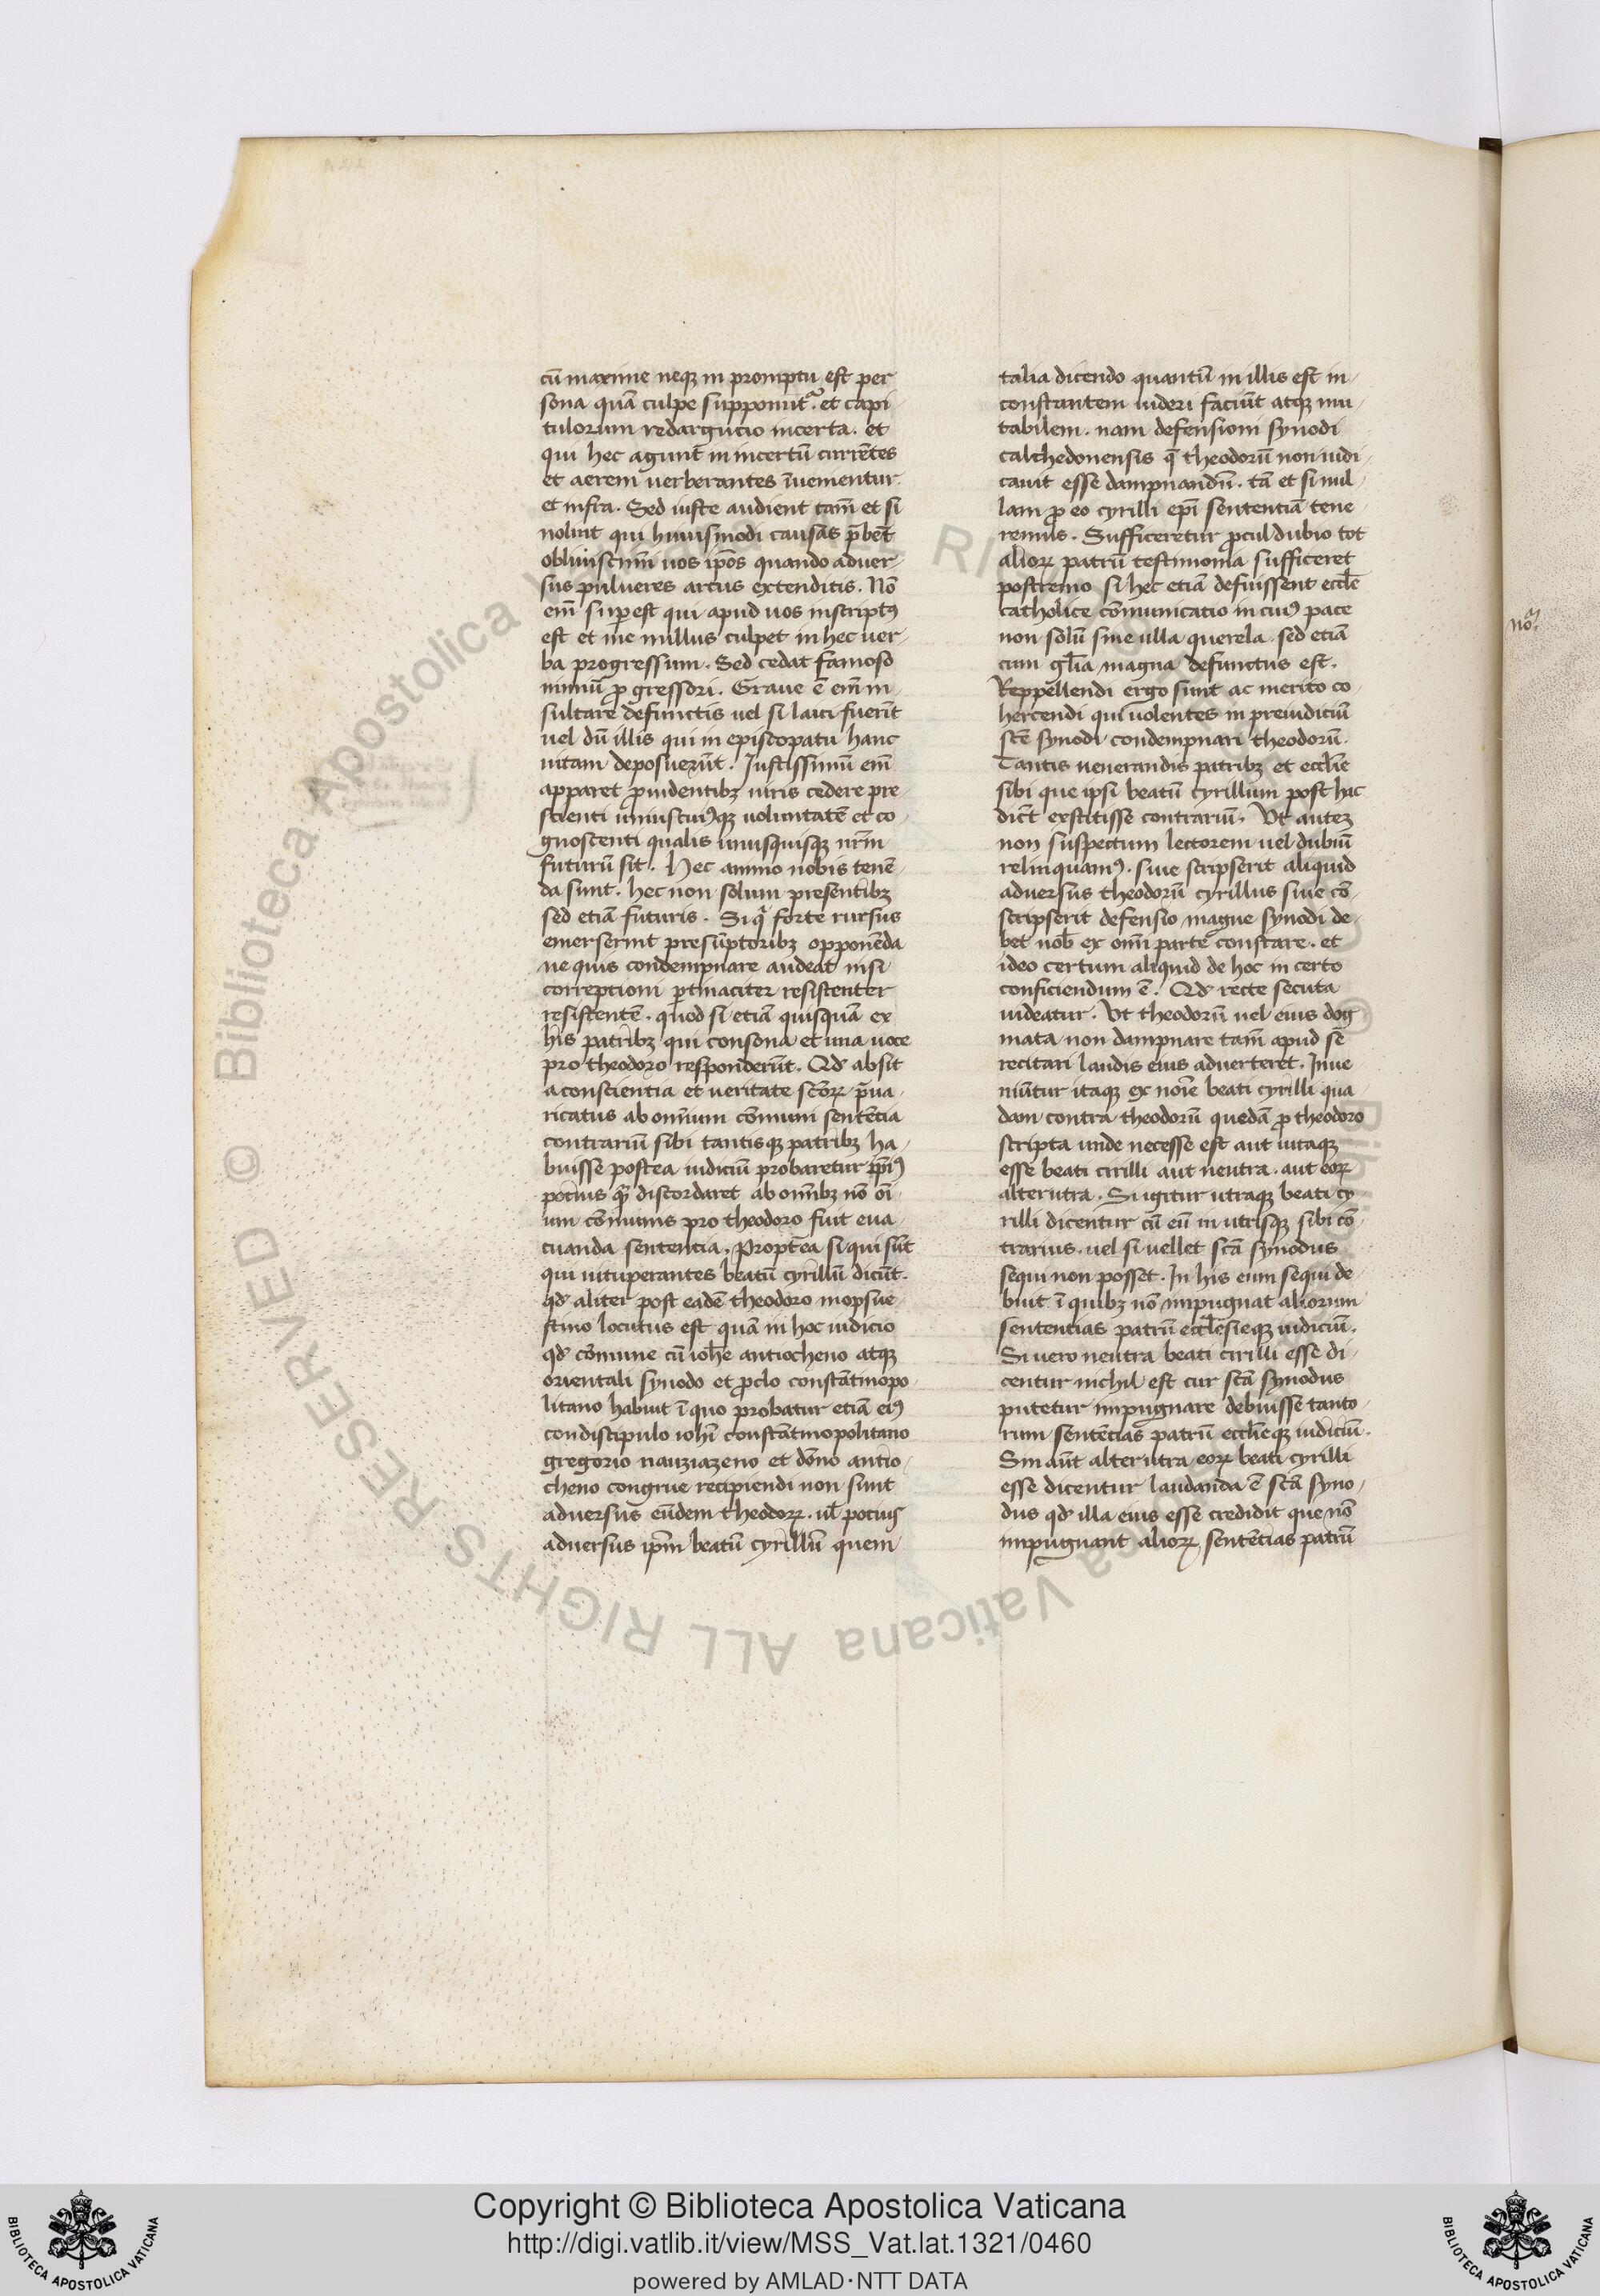 cū maxime neqꝫ in promptu est per
sona quā culpe supponit᷑. et capi
tulorum redargucio incerta. et
qui hec agunt in incertū currētes
et aerem uerberantes īuementur.
et infra. Sed iuste audient tam̄ et si
nolint qui huiusmodi causās p̄bēt
obliuiscim̄ uos ip̄os quando aduer-
sus pulueres arcus extenditis. Nō
em̄ suꝑest qui apud uos inscriptꝰ
est et me nullus culpet in hec uer-
ba progressum. Sed cedat famoso
nimiū ꝓgressori. Graue ē em̄ in-
sultare defunctis uel si laici fuerīt
uel dū illis qui in episcopatu hanc
uitam deposuerūt. Iustissimū em̄
apparet ꝓuidentibꝫ uiris cedere pre-
scienti uniuscuiꝰqꝫ uoluntatē et co-
gnoscenti qualis unusquisqꝫ nr̄m
futurū sit. Hec animo nobis tenē-
da sunt. hec non solum presentibꝫ
sed etiā futuris. Si q̄ forte rursus
emerserint presūptoribꝫ opponēda
ne quis condempnare audeat nisi
correptioni ꝑtinaciter resistenter
resistentē. quod si etiā quisquā ex
his patribꝫ qui consona et una uoce
pro theodoro responderūt. Qd̄ absit
a conscientia et ueritate sc̄orꝝ p̄ua-
ricatus ab omnium cōmuni sentētia
contrariū sibi tantisqꝫ patribꝫ ha-
buisse postea iudiciū probaretur ip̄iꝰ
potius qꝫ discordaret ab omībꝫ nō oī-
um cōmunis pro theodoro fuit eua-
cuanda sententia. Propt̄ea si qui sūt
qui uituperantes beatū cyrillū dicūt.
qd̄ aliter post eadē theodoro mopsue-
steno locutus est quā in hoc iudicio
qd̄ cōmune cū ioh̄e antiocheno atqꝫ
orientali synodo et ꝓclo constātinopo-
litano habuit ī quo probatur etiā eiꝰ
condiscipulo ioh̄i constātinopolitano
gregorio nauziazeno et dōno antio-
cheno congrue recipiendi non sunt
aduersus eūdem theodorꝝ. ul̄ potius
aduersus ip̄m beatū cyrillū quem
talia dicendo quantū in illis est in-
constantem uideri faciūt atqꝫ mu-
tabilem. nam defensioni synodi
calchedonensis q̄ theodorū non iudi-
cauit esse dampnandū. tā et si nul-
lam ꝓ eo cyrilli ep̄i sententiā tene-
remus. Sufficeretur ꝓcul dubio tot
aliorꝝ patrū testimonia sufficeret
postremo si hec etiā defuissent eccl̄e
catholice cōmunicatio in cuiꝰ pace
non solū sine ulla querela. sed etiā
cum gl̄ia magna defunctus est.
Reppellendi ergo sunt ac merito co-
hercendi qui uolentes in preiudiciū
sc̄e synodi condempnari theodorū.
Tantis uenerandis patribꝫ et eccl̄ie
sibi que ipsi beatū cyrillum post hac
dicūt exstitisse contrariū. Ut autez
non suspectum lectorem uel dubiū
relinquamꝰ. siue scripserit aliquid
aduersus theodorū cyrillus siue cō-
scripserit defensio magne synodi de-
bet nob̄ ex om̄i parte constare. et
ideo certum aliquid de hoc in certo
conficiendum ē. Qd̄ recte secuta
uideatur. Ut theodorū uel eius dog-
mata non dampnare tam̄ apud sē
recitari laudis eius aduerteret. Inue-
niūtur itaqꝫ ex noīe beati cyrilli qua-
dam contra theodorū quedā ꝓ theodoro
scripta unde necesse est aut utraqꝫ
esse beati cirilli aut neutra. aut eorꝝ
alterutra. Si igitur utraqꝫ beati cy-
rilli dicentur cū eū in utrisqꝫ sibi cō-
trarius. uel si uellet sc̄a synodus
sequi non posset. In his eum sequi de-
buit ī quibꝫ nō impugnat aliorum
sententias patrū eccl̄esieqꝫ iudiciū.
Si uero neutra beati cirilli esse di-
centur nichil est cur sc̄a synodus
putetur impugnare debuisse tanto-
rum sentētias patrū eccl̄ieqꝫ iudiciū.
Sin aūt alterutra eorꝝ beati cyrilli
esse dicentur laudanda ē sc̄a syno-
dus qd̄ illa eius esse credidit que nō
impugnant aliorꝝ sentētias patrū
nō.
Copyright © Biblioteca Apostolica Vaticana
http://digi.vatlib.it/view/MSS_Vat.lat.1321/0460
powered by AMLAD·NTT DATA
BIBLIOTECA APOSTOLICA VATICANA
BIBLIOTECA APOSTOLICA VATICANA